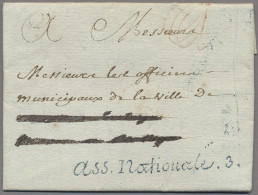 A Messieurs
Messieurs les officiers
municipaux de la ville de
ass. Nationale. 3.